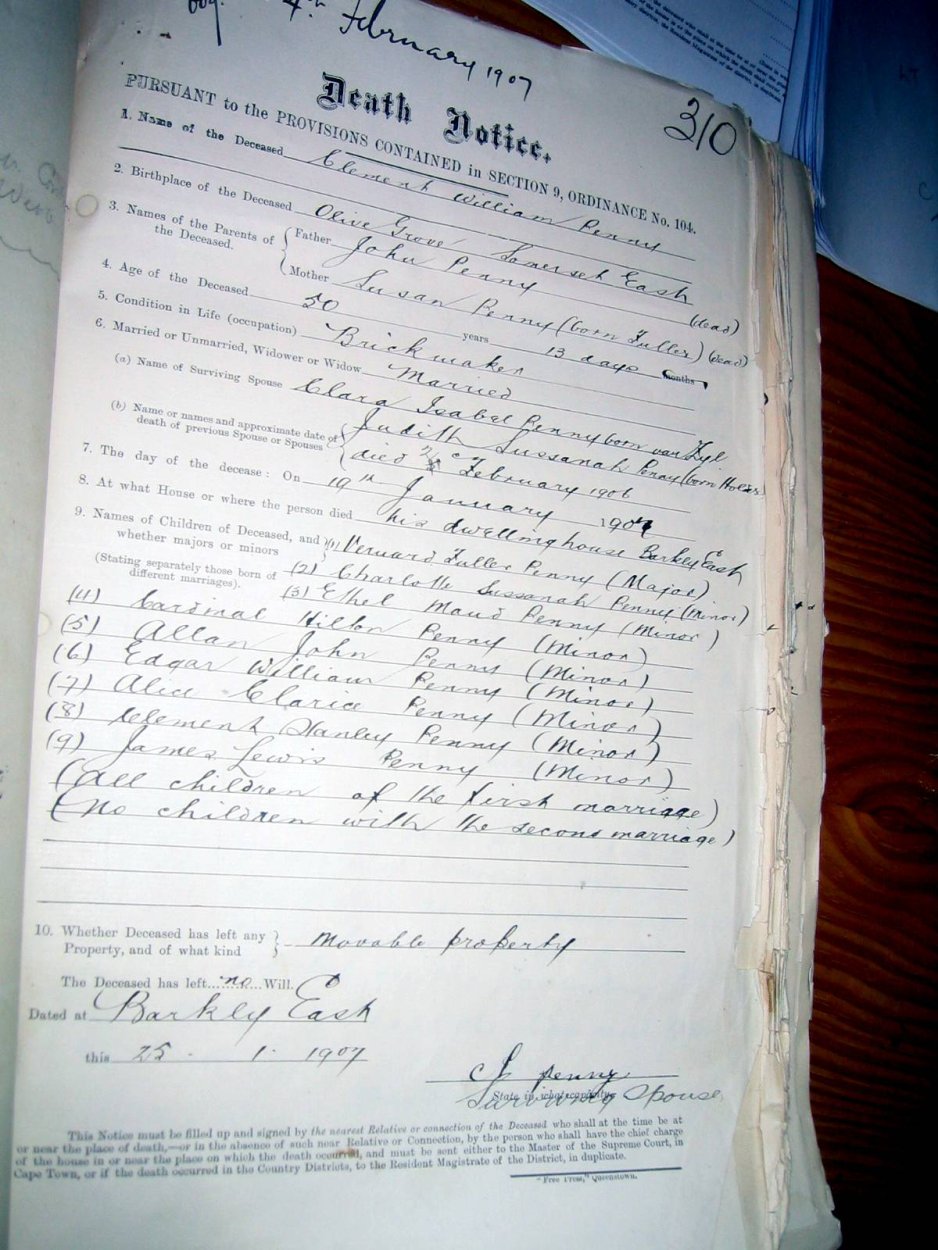 4th February 1907
310
Death Notice.
PURSUANT to the PROVISIONS CONTAINED in SECTION 9, ORDINANCE No. 104.
1. Name of the Deceased Clement William Penny
2. Birthplace of the Deceased Olive Grove Somerset East
3. Names of the Parents of the Deceased. { Father John Penny (dead)
Mother Susan Penny (born Fuller) (dead)
4. Age of the Deceased 50 years 13 days months
5. Condition in Life (occupation) Brickmaker
6. Married or Unmarried, Widower or Widow Married
(a) Name of Surviving Spouse Clara Isabel Penny born van Zyl
(b) Name or names and approximate date of death of previous Spouse or Spouses { Judith Sussanah Penny (born
died February 1906
7. The day of the decease: On 19th January 1907
8. At what House or where the person died his dwelling house Barkly East
9. Names of Children of Deceased, and whether majors or minors } (1) Vernard Fuller Penny (Major)
(Stating separately those born of different marriages). (2) Charlotte Sussanah Penny (Minor)
(3) Ethel Maud Penny (Minor)
(4) Cardinal Hilton Penny (Minor)
(5) Allan John Penny (Minor)
(6) Edgar William Penny (Minor)
(7) Alice Clarice Penny (Minor)
(8) Clement Stanley Penny (Minor)
(9) James Lewis Penny (Minor)
(all children of the first marriage)
(no children with the second marriage)
10. Whether Deceased has left any Property, and of what kind } Movable property
The Deceased has left no Will.
Dated at Barkly East
this 25 . 1 . 1907
Penny
State in what capacity
Surviving Spouse
This Notice must be filled up and signed by the nearest Relative or connection of the Deceased who shall at the time be at
or near the place of death,—or in the absence of such near Relative or Connection, by the person who shall have the chief charge
of the house in or near the place on which the death occurred, and must be sent either to the Master of the Supreme Court, in
Cape Town, or if the death occurred in the Country Districts, to the Resident Magistrate of the District, in duplicate.
"Free Press," Queenstown.